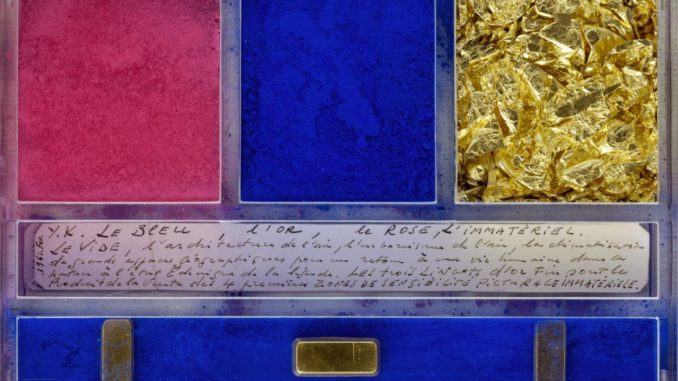 Y.K. LE BLEU, L'OR, LE ROSE, L'IMMATÉRIEL.
LE VIDE, l'architecture de l'air, l'urbanisme de l'air, la climatisation
de grands espaces géographiques pour un retour à une vie humaine dans la
nature à l'état Edénique de la légende. LES TROIS LINGOTS d'OR Fin sont le
PRODUIT de la Vente des 4 premières ZONES DE SENSIBILITÉ PICTURALE IMMATÉRIELLE.